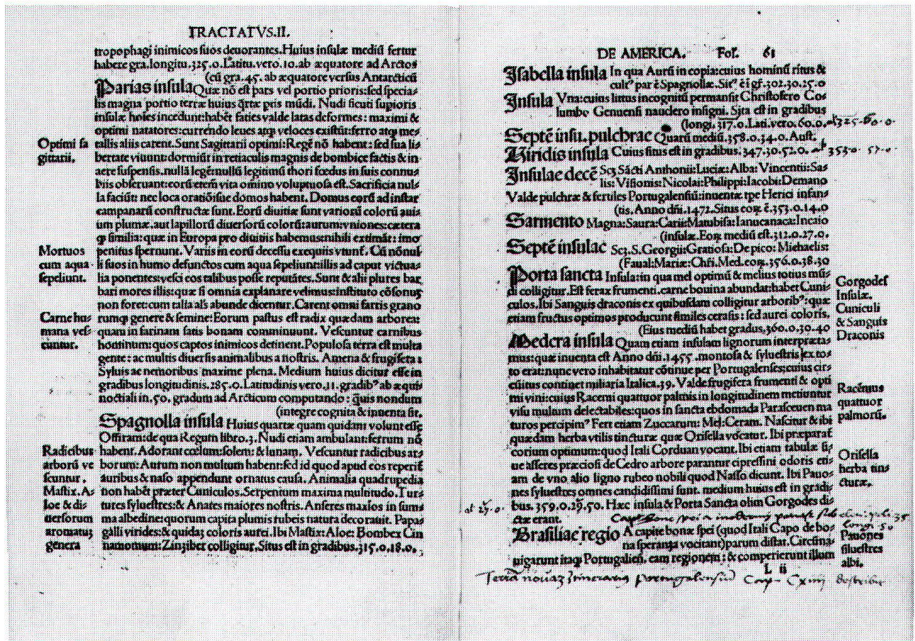 TRACTATVS.II.
tropophagi inimicos suos deuorantes. Huius insulæ mediũ fertur
habere gra. longitu. 325.0. Latitu. vero. 10. ab æquatore ad Arctos
(cũ gra. 45. ab æquatore versus Antarcticũ
Parias insula Quæ nõ est pars vel portio prioris: sed specia-
lis magna portio terræ huius
optimi natatores: currendo leues atqȝ veloces
Optimi sa
gittarii.
tallis aliis carent. Sunt Sagittarii optimi: Regẽ nõ habent: sed sua li
bertate viuunt: dormiũt in retiaculis magnis de bombice factis & in
aere suspensis. nullã legẽ
biis obseruant: eorũ etẽm vita omino voluptuosa est. Sacrificia nul-
la faciũt: nec loca orationisue domos habent. Domus eorũ ad instar
campanarũ constructæ sunt. Eorũ diuitiæ sunt variorũ colorũ auiũ
plumæ. aut lapillorũ diuersorũ
similia: quæ in Europa pro diuitiis habemus: nihil extimãt: imo
penitus spernunt.
Mortuos
cum aqua
sepeliunt.
suos in humo defunctos cum aqua sepeliunt: illis ad caput victua
lia ponentes: vesci eos talibus posse reputãtes. Sunt & alii plures bar
bari mores illis: quæ si omnia explanare velimus: instituto cõsonus
non foret: cum talia als abunde dicentur. Carent omni farris grano
Carne hu-
mana ves
cuntur.
rumqȝ genere & semine: Eorum pastus est radix quædam arborea:
quam in farinam satis bonam comminuunt. Vescuntur carnibus
hominum: quos captos inimicos detinent. Populosa terra est multa
gente: ac multis diuersis animalibus a nostris. Amena & frugifera
Syluis ac nemoribus maxime plena. Medium huius dicitur esse in
gradibus longitudinis. 285.0. Latitudinis vero. 11. gradibꝰ ab æqui
noctiali in. 50. gradum ad Arcticum computando: quis nondum
(integre cognita & inuenta sit.
Spagnolla insula Huius quartæ quam quidam volunt esse
Offiram: de qua Regum libro. 3. Nudi etiam ambulant: ferrum nõ
Radicibus
arborũ ve
scuntur.
Mastix. A-
loe & di
uersorum
aromatũ
genera
habent. Adorant cœlum: solem: & lunam. Vescuntur radicibus ar-
borum: Aurum non multum habent: sed id quod apud eos reperit
auribus & naso appendunt ornatus causa. Animalia quadrupedia
non habẽt præter Cuniculos. Serpentum maxima multitudo. Tur-
tures syluestres: & Anates maiores nostris. Anseres maxlos in sum
ma albedine: quorum capita plumis rubeis natura decorauit. Papa-
galli virides: & quidaȝ coloris aurei. Ibi Mastix: Aloe: Bombex Cin
namomum: Zinziber colligitur. Situs est in gradibus. 315.0.18.0.
DE AMERICA. Fol. 61
Isabella insula In qua Aurũ in copia: cuius hominũ ritus &
cultꝰ par ẽ Spagnollæ. 302.30.25.0
Insula Vna: cuius littus incognitũ permansit Christofero Co
lumbo Genuensi nauclero insigni. Sita est in gradibus
(longi. 317.0. Lati. vero. 60.0.
Septẽ insu. pulchrae Quarũ mediũ. 358.0.14.0. Aust.
Viridis insula Cuius situs est in gradibus. 347.30.52.0.
Insulae decẽ Scȝ Sãcti Anthonii: Luciæ: Alba: Vincentii: Sa-
lis: Visionis: Nicolai: Philippi: Iacobi: Demano
Valde pulchræ & ferules Portugaliensiũ: inuentæ tpe Herici infan
(tis, Anno dñi. 1472. Situs eorȝ ẽ. 353.0.14.0
Sarmento Magna: Saura: Cariæ: Matubisa: Ianucanaca: Incaio
(insulæ. Eorȝ mediũ est. 312.0.27.0.
Septẽ insulae Scȝ. S. Georgii: Gratiosa: De pico: Michaelis:
(Faual: Mariæ: Chři. Med. eorȝ. 356.0.38.30
Porta sancta Insula: in qua mel optimũ & melius totius mũ-
di colligitur. Est ferax frumenti. carne bouina abundat: habet Cuni
culos. Ibi Sanguis draconis ex quibusdam colligitur arboribꝰ: quæ
etiam fructus optimos producunt similes cerasis: sed aurei coloris.
Gorgodes
Insulæ.
Cuniculi
& Sanguis
Draconis
(Eius mediũ habet gradus. 360.0.30.40
Medera insula Quam etiam insulam lignorum interpræta-
mus: quæ inuenta est Anno dñi. 1455. montosa & syluestris ex to-
to erat: nunc vero inhabitatur cõtinue per Portugalenses: cuius cir-
cuitus continet miliaria Italica. 39. Valde frugifera frumenti & opti
mi vini: cuius Racemi quattuor palmos in longitudinem metiuntur
visu multum delectabiles: quos in sancta ebdomada Parasceuen ma
turos percipimꝰ Fert etiam Zuccarum: Mel: Ceram. Nascitur & ibi
quædam herba vtilis tincturæ quæ Orisella vocatur. Ibi præparãt
corium optimum: quod Itali Corduan vocant. Ibi etiam tabulæ si-
ue asseres præciosi de Cedro arbore parantur cipressini odoris eti-
am de vno alio ligno rubeo nobili quod Nasso dicunt. Ibi Pauo-
nes syluestres omnes candidissimi sunt. medium huius est in gradi
bus. 359.0.29.50. Hæc insula & Porta Sancta olim Gorgodes di-
ctæ erant.
Racemus
quattuor
palmorũ.
Orisella
herba tin-
cturæ.
Pauones
siluestres
albi.
Brasiliae regio A capite bonæ spei (quod Itali Capo de bo-
na speranza vocitant) parum distat. Circũna
uigarunt itaqȝ Portugalien. eam regionem: & comperierunt illum
L ii